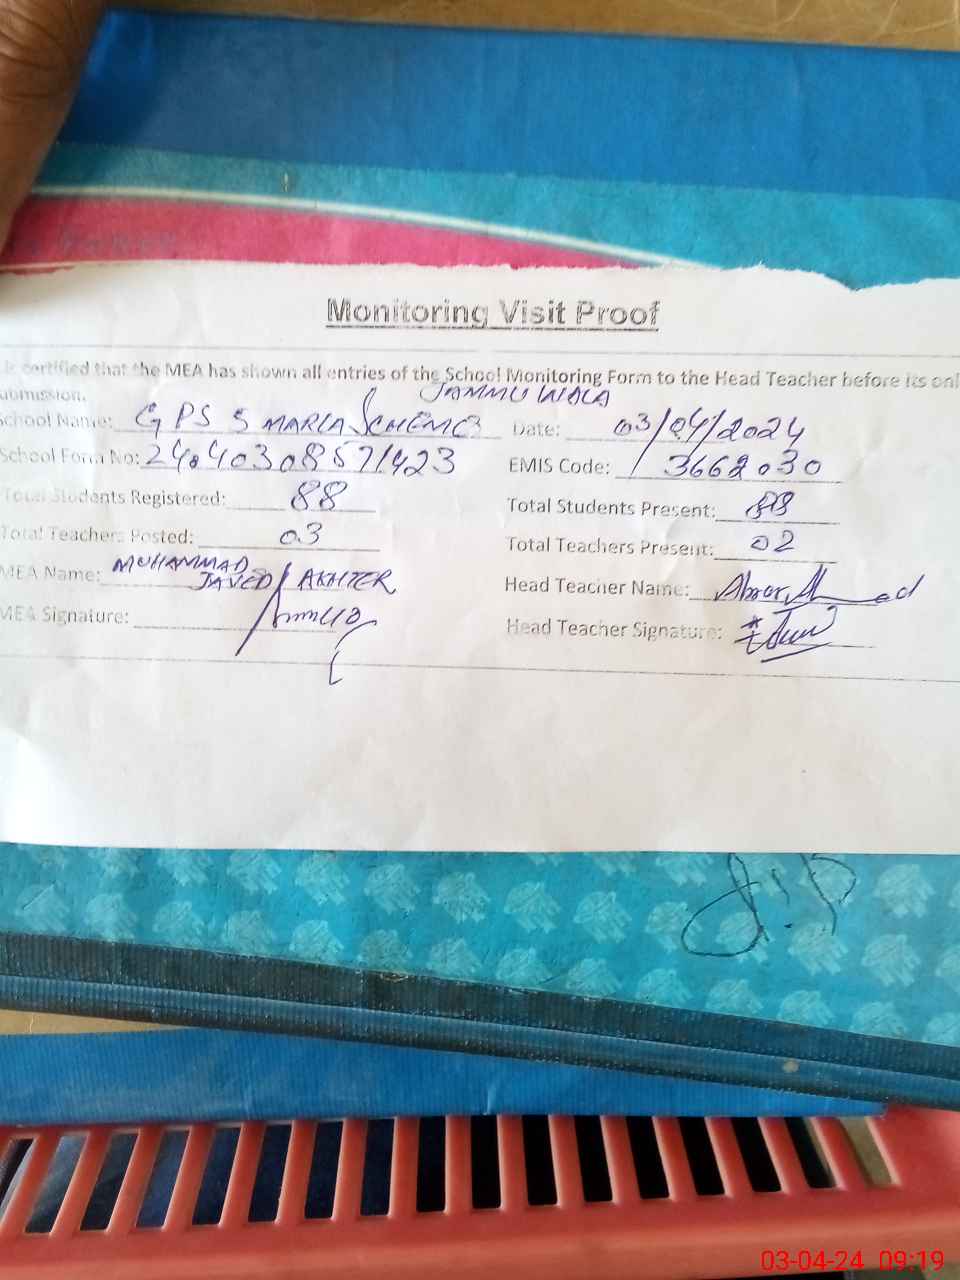 Monitoring Visit Proof
is certified that the MEA has shown all entries of the School Monitoring Form to the Head Teacher before its onl
ubmission.
JAMMU WALA
School Name: GPS 5 MARLA SCHEME Date: 03/04/2024
School Form No: 24040308571423 EMIS Code: 3662030
Total Students Registered: 88 Total Students Present: 88
Total Teachers Posted: 03 Total Teachers Present: 02
MEA Name: MUHAMMAD JAVED AKHTER Head Teacher Name:
MEA Signature: Head Teacher Signature:
03-04-24 09:19